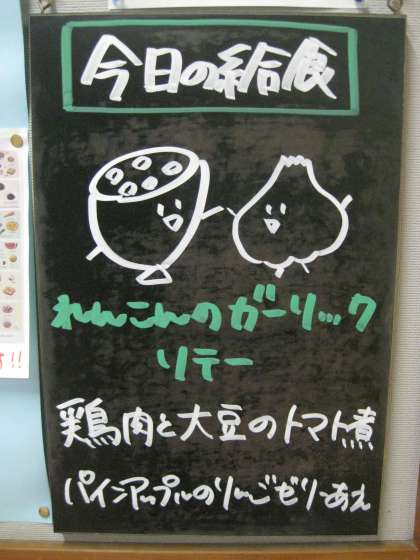 今日の給食
れんこんのガーリック
リテー
鶏肉と大豆のトマト煮
パインアップルのりんごゼリーあえ
!!